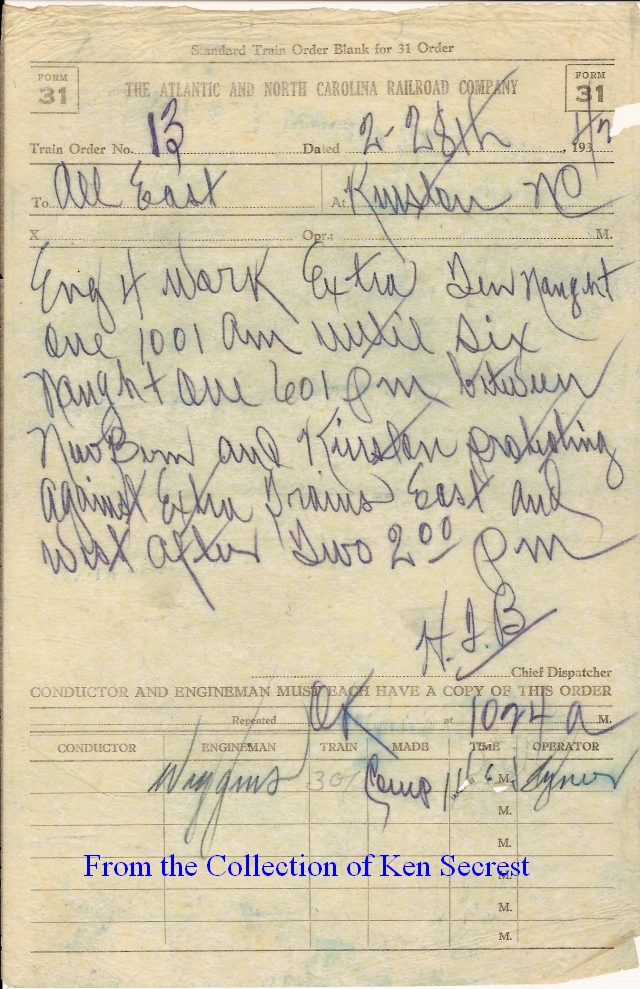 Standard Train Order Blank for 31 Order
FORM 31
THE ATLANTIC AND NORTH CAROLINA RAILROAD COMPANY
FORM 31
Train Order No. 13 Dated 2-28th, 193 42
To All East At Kinston NC
X Opr.; M.
Eng 4 Work Extra Ten Naught
one 1001 Am until Six
Naught one 601 Pm between
New Bern and Kinston protecting
against Extra Trains East and
west after Two 2 00 Pm
H.J.B
Chief Dispatcher
CONDUCTOR AND ENGINEMAN MUST EACH HAVE A COPY OF THIS ORDER
Repeated OK at 1024 a M.
CONDUCTOR ENGINEMAN TRAIN MADE TIME OPERATOR
Wiggins 301 Comp M.
M.
M.
From the Collection of Ken Secrest
M.
M.
M.